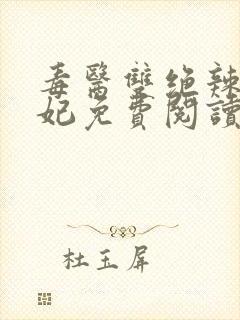 毒醫雙绝辣
妃免費閱讀
杜玉屏